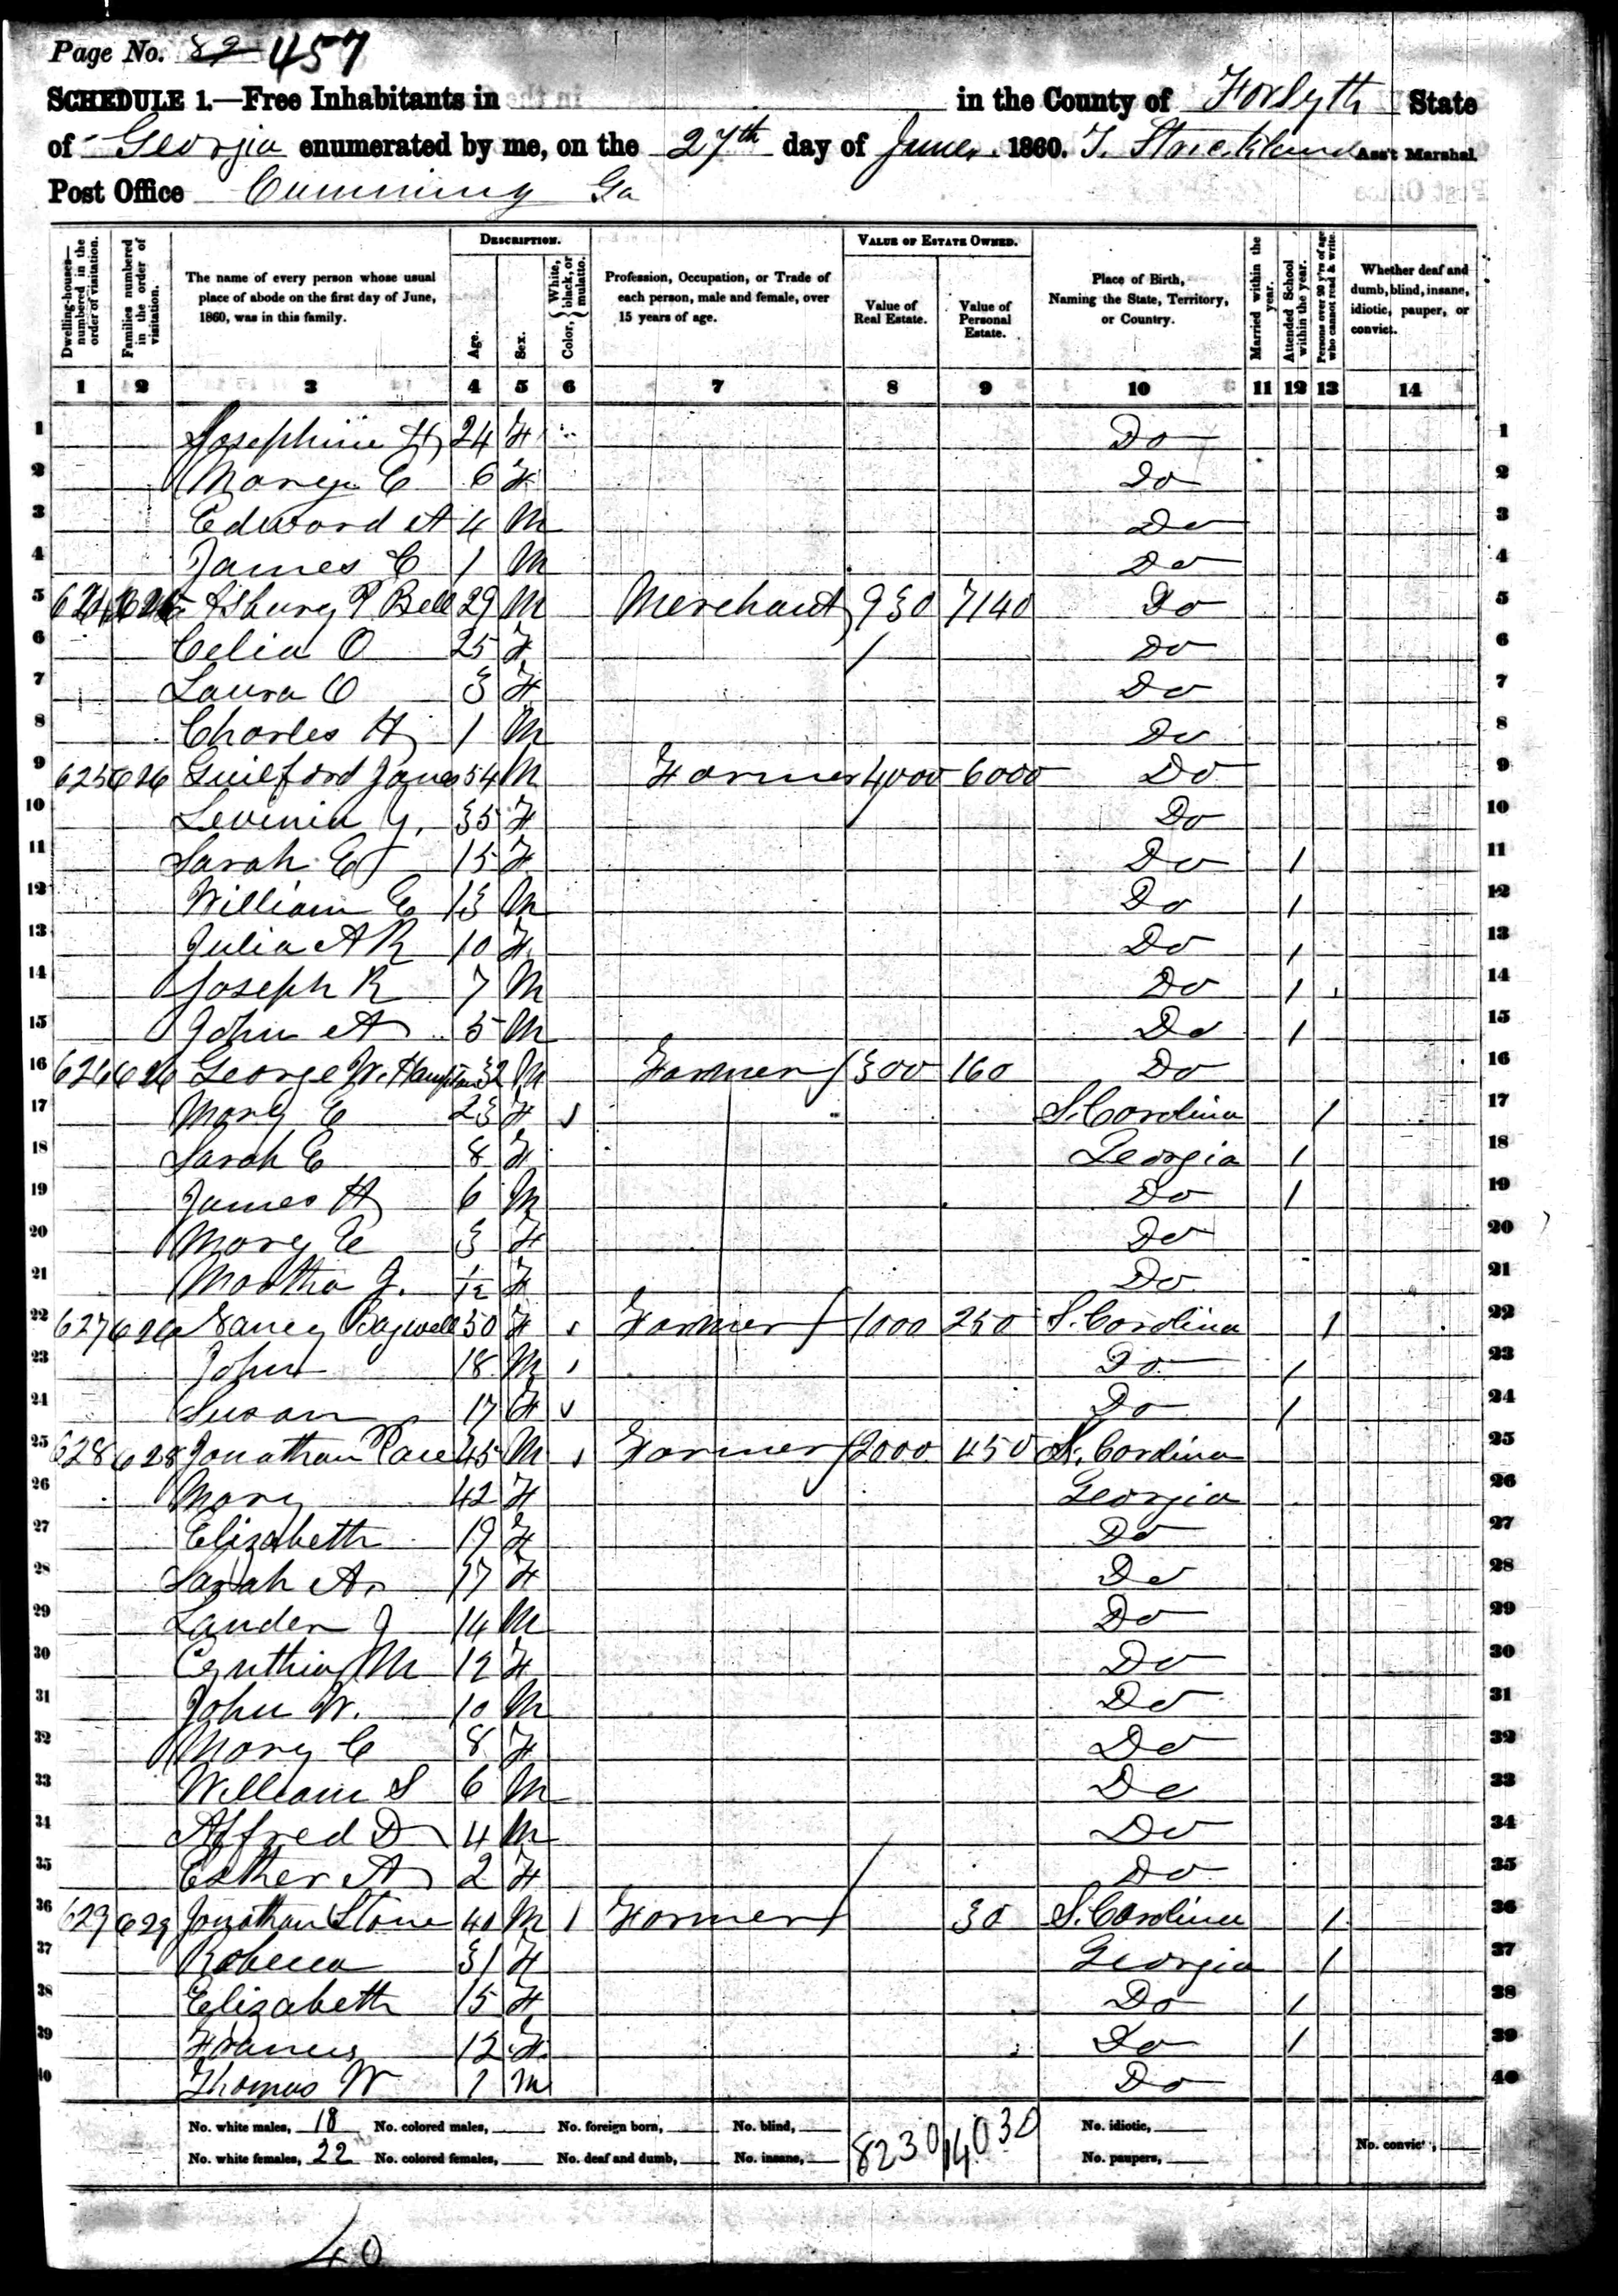 Page No. 82 457
SCHEDULE 1.—Free Inhabitants in in the County of Forsyth State
of Georgia enumerated by me, on the 27th day of June 1860. T. Strickland Ass't Marshal
Post Office Cumming Ga
Dwelling-houses—numbered in the order of visitation. Families numbered in the order of visitation. The name of every person whose usual place of abode on the first day of June, 1860, was in this family. DESCRIPTION. Age. Sex. Color, White, black, or mulatto. Profession, Occupation, or Trade of each person, male and female, over 15 years of age. VALUE OF ESTATE OWNED. Value of Real Estate. Value of Personal Estate. Place of Birth, Naming the State, Territory, or Country. Married within the year. Attended School within the year. Persons over 20 y'rs of age who cannot read & write. Whether deaf and dumb, blind, insane, idiotic, pauper, or convict.
1 2 3 4 5 6 7 8 9 10 11 12 13 14
1 Josephine H 24 F Do 1
2 Mary E 6 F Do 2
3 Edward A 4 M Do 3
4 James C 1 M Do 4
5 Asbury P Bell 29 M Merchant 930 7140 Do 5
6 Celia O 25 F Do 6
7 Laura O 3 F Do 7
8 Charles H 1 M Do 8
9 625 626 Guilford Jones 54 M Farmer 4000 6000 Do 9
10 Levinia Y. 35 F Do 10
11 Sarah E 15 F Do / 11
12 William E 13 M Do / 12
13 Julia A R 10 F Do / 13
14 Joseph R 7 M Do / 14
15 John A 5 M Do / 15
16 626 626 George W. Hampton 32 M Farmer 300 160 Do 16
17 Mary E 23 F S. Carolina / 17
18 Sarah E 8 F Georgia / 18
19 James H 6 M Do / 19
20 Mary E 3 F Do 20
21 Martha J. 1/12 F Do 21
22 627 626 Nancy Bagwell 50 F Farmer 1000 250 S. Carolina / 22
23 John 18 M Do / 23
24 Susan 17 F Do / 24
25 628 628 Jonathan Pace 45 M Farmer 2000 450 N. Carolina 25
26 Mary 42 F Georgia 26
27 Elizabeth 19 F Do 27
28 Sarah A. 17 F Do 28
29 Lander J 14 M Do 29
30 Cynthia M 12 F Do 30
31 John W. 10 M Do 31
32 Mary C 8 F Do 32
33 William S 6 M Do 33
34 Alfred D 4 M Do 34
35 Esther A 2 F Do 35
36 629 629 Jonathan Stone 40 M Farmer 30 S. Carolina / 36
37 Rebecca 31 F Georgia / 37
38 Elizabeth 15 F Do / 38
39 Frances 12 F Do / 39
40 Thomas W 1 M Do 40
No. white males, 18 No. colored males, No. foreign born, No. blind, 8230 14030 No. idiotic,
No. white females, 22 No. colored females, No. deaf and dumb, No. insane, No. paupers, No. convict,
40